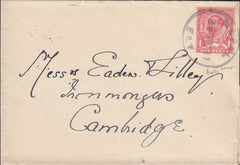 Messrs Eaden Lilley
Ironmongers
Cambridge